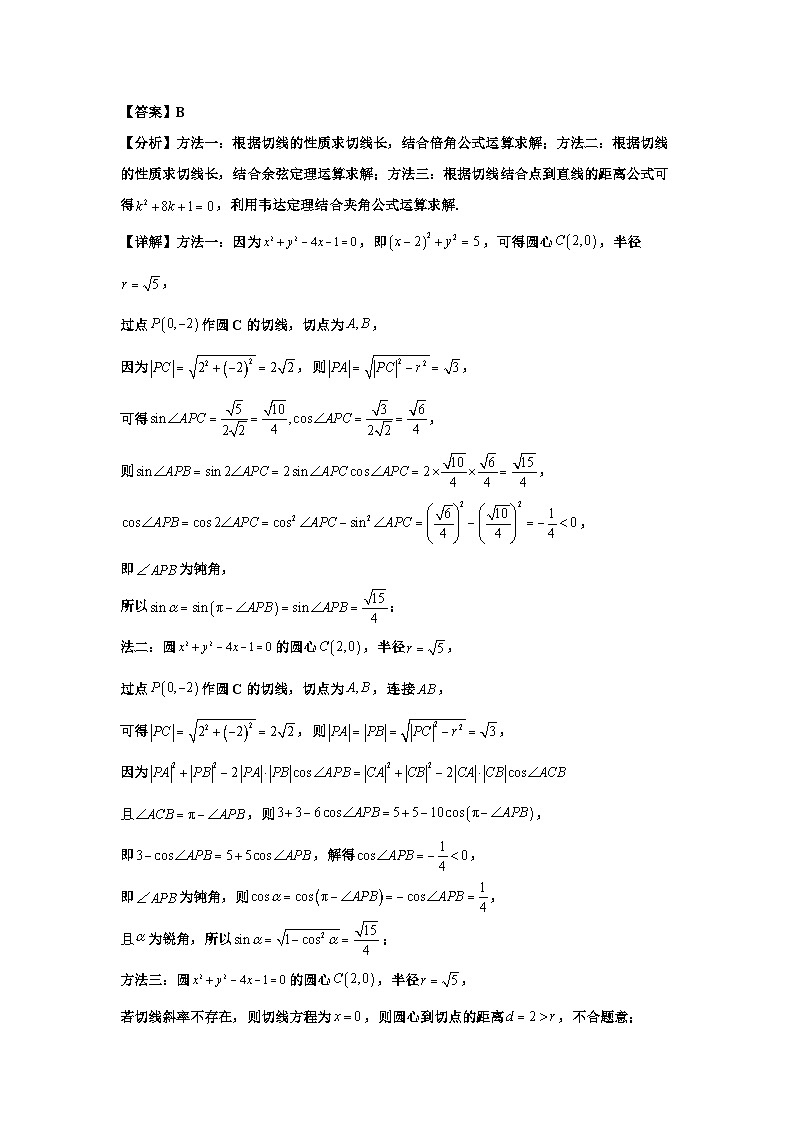 【答案】B
【分析】方法一：根据切线的性质求切线长，结合倍角公式运算求解；方法二：根据切线
的性质求切线长，结合余弦定理运算求解；方法三：根据切线结合点到直线的距离公式可
得k²+8k+1=0，利用韦达定理结合夹角公式运算求解.
【详解】方法一：因为x²+y²-4x-1=0，即(x-2)²+y²=5，可得圆心C(2,0)，半径
r=√5，
过点P(0,-2)作圆C的切线，切点为A,B，
因为|PC|=√(2²+(-2)²)=2√2，则|PA|=√(|PC|²-r²)=√3，
可得sin∠APC=√5/(2√2)=√10/4,cos∠APC=√3/(2√2)=√6/4，
则sin∠APB=sin2∠APC=2sin∠APCcos∠APC=2×√10/4×√6/4=√15/4，
cos∠APB=cos2∠APC=cos²∠APC-sin²∠APC=(√6/4)²-(√10/4)²=-1/4<0，
即∠APB为钝角，
所以sinα=sin(π-∠APB)=sin∠APB=√15/4；
法二：圆x²+y²-4x-1=0的圆心C(2,0)，半径r=√5，
过点P(0,-2)作圆C的切线，切点为A,B，连接AB，
可得|PC|=√(2²+(-2)²)=2√2，则|PA|=|PB|=√(|PC|²-r²)=√3，
因为|PA|²+|PB|²-2|PA|·|PB|cos∠APB=|CA|²+|CB|²-2|CA|·|CB|cos∠ACB
且∠ACB=π-∠APB，则3+3-6cos∠APB=5+5-10cos(π-∠APB)，
即3-cos∠APB=5+5cos∠APB，解得cos∠APB=-1/4<0，
即∠APB为钝角，则cosα=cos(π-∠APB)=-cos∠APB=1/4，
且α为锐角，所以sinα=√(1-cos²α)=√15/4；
方法三：圆x²+y²-4x-1=0的圆心C(2,0)，半径r=√5，
若切线斜率不存在，则切线方程为x=0，则圆心到切点的距离d=2>r，不合题意；